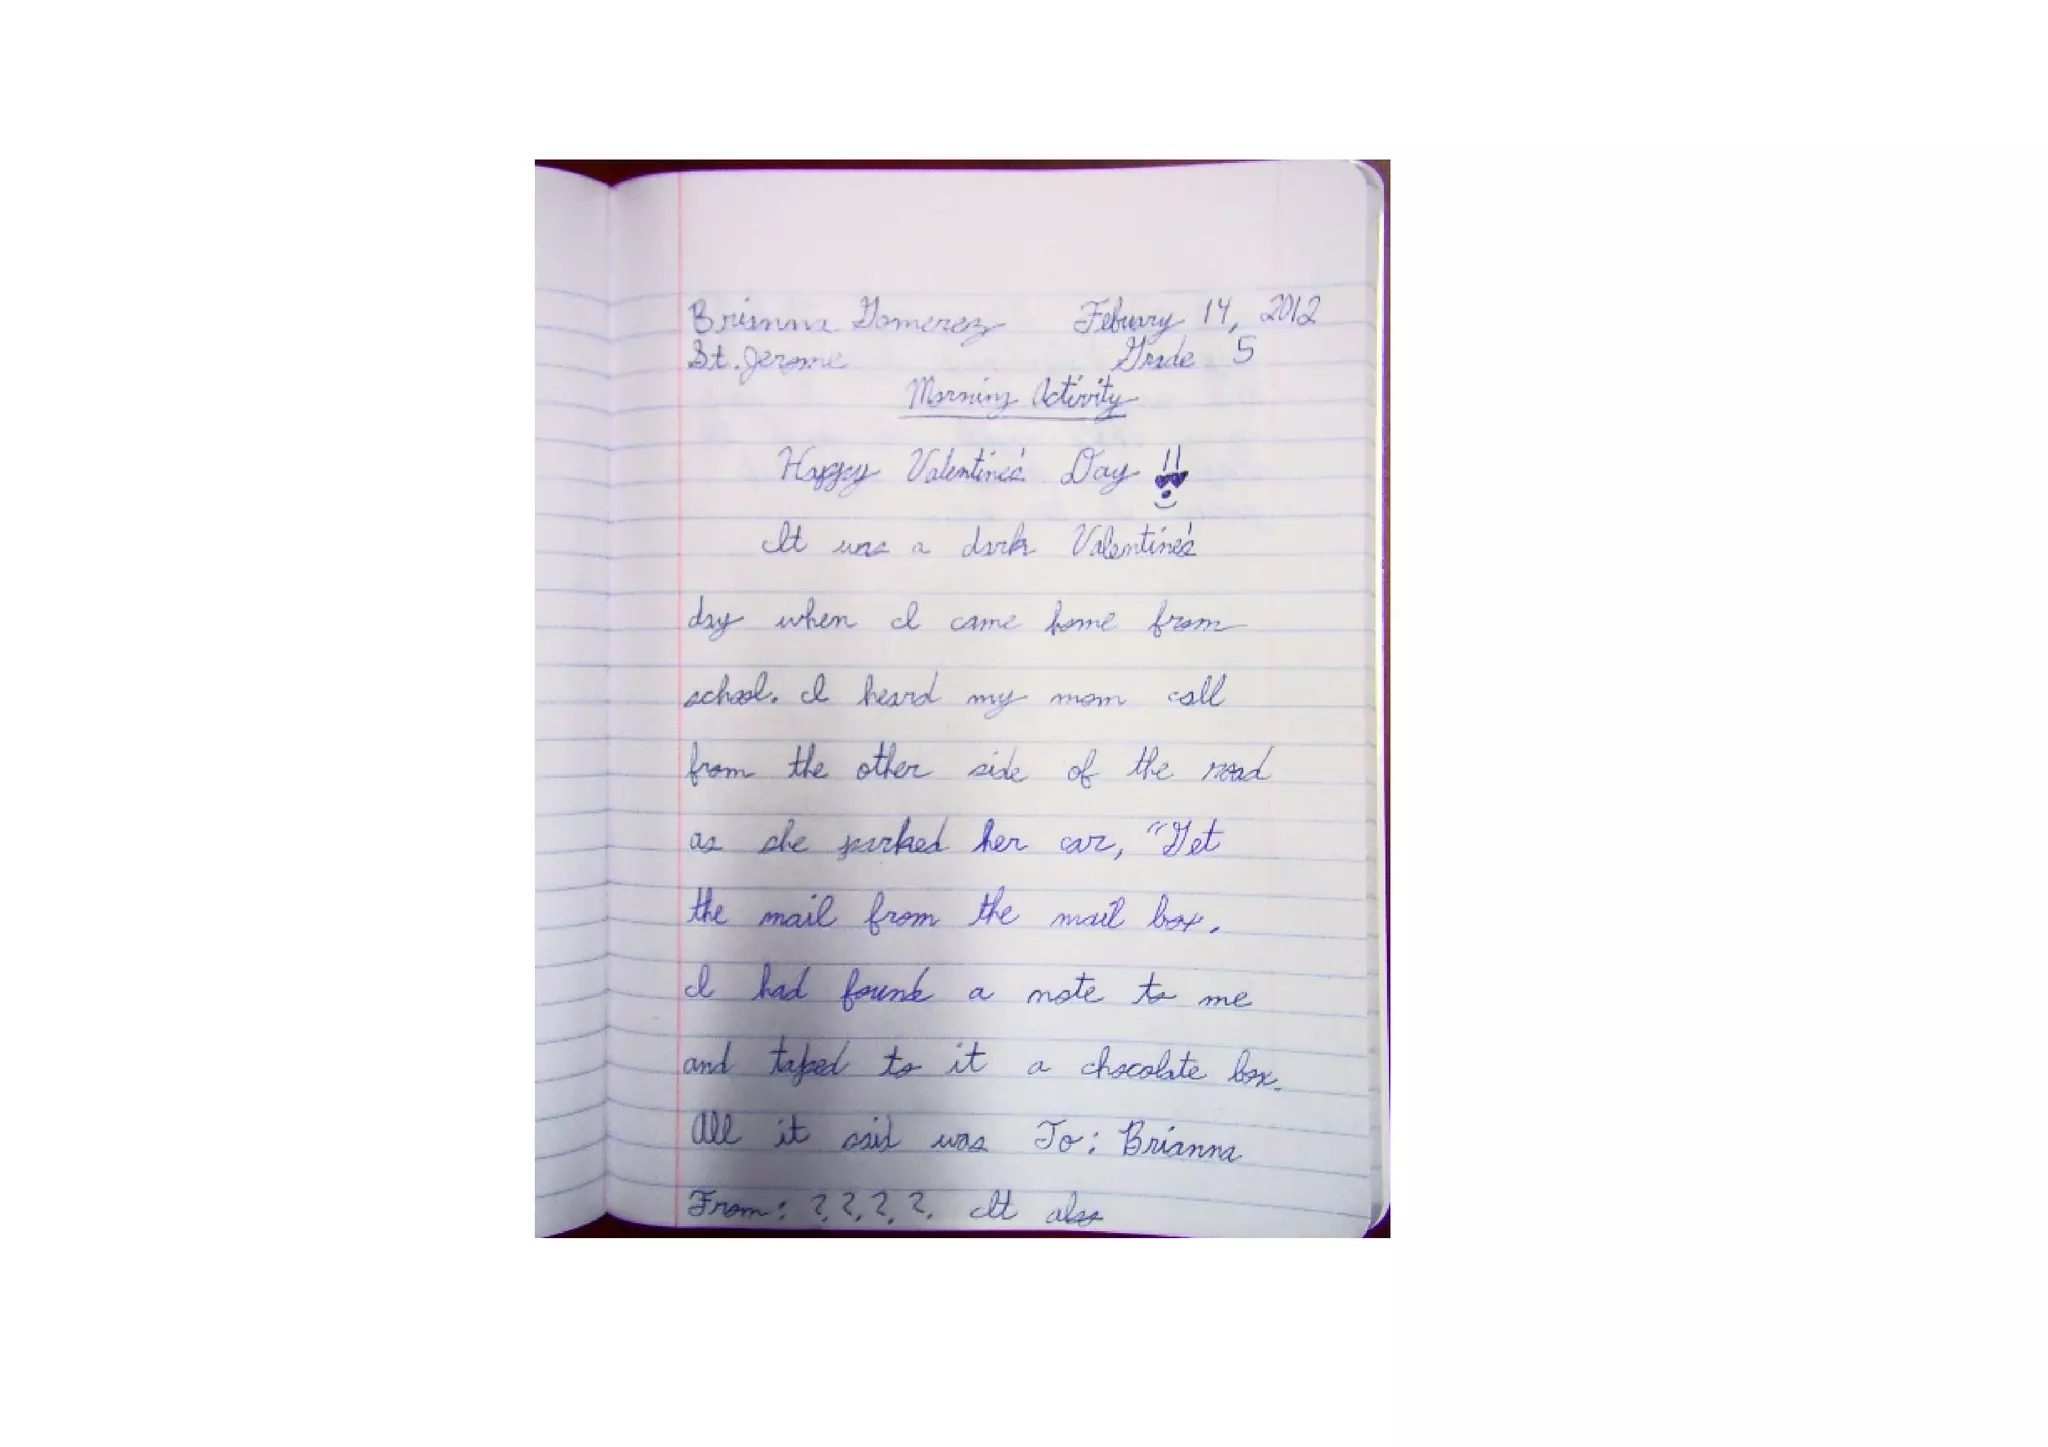 Brianna Gomerez Febuary 14, 2012
St. Jerome Grade 5
Morning Activity
Happy Valentine's Day !!
It was a dark Valentine's
day when I came home from
school. I heard my mom call
from the other side of the road
as she parked her car, "Get
the mail from the mail box.
I had found a note to me
and taped to it a chocolate box.
All it said was To: Brianna
From: ?, ?, ?, ?. It also